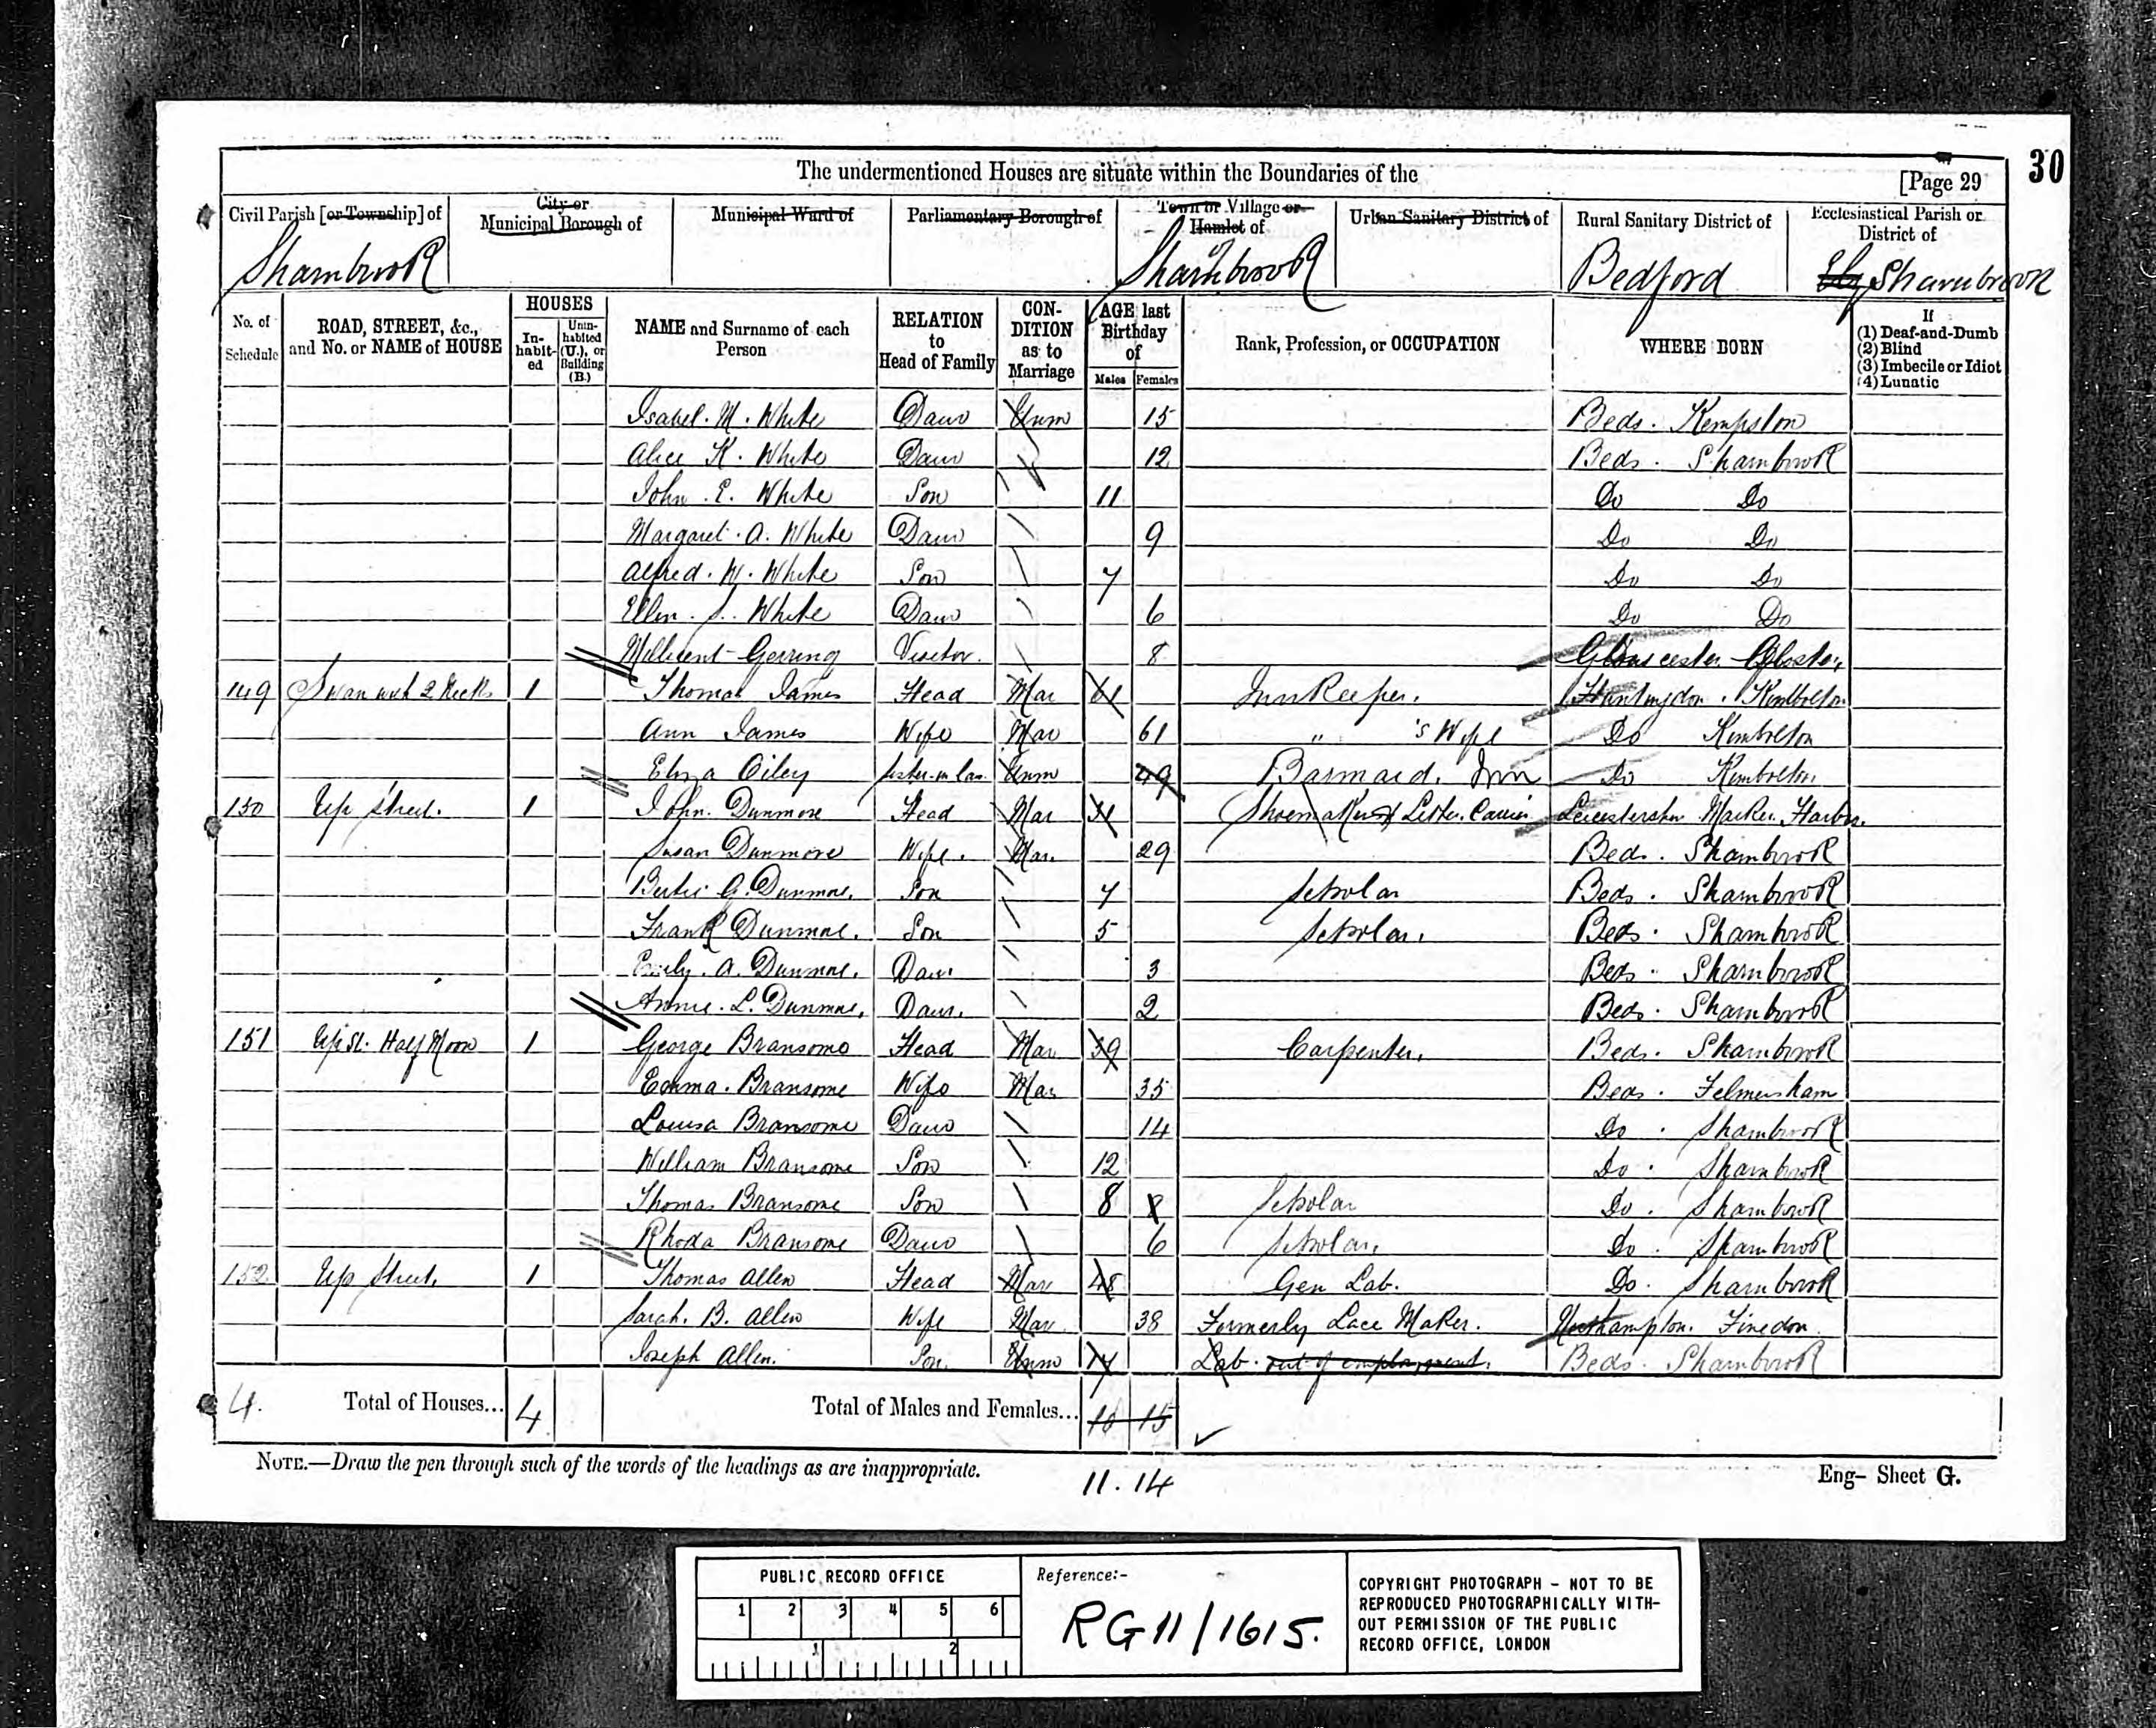 The undermentioned Houses are situate within the Boundaries of the
[Page 29
30
Civil Parish [or Township] of
City or Municipal Borough of
Municipal Ward of
Parliamentary Borough of
Town or Village or Hamlet of
Urban Sanitary District of
Rural Sanitary District of
Ecclesiastical Parish or District of
Sharnbrook Sharnbrook Bedford Sharnbrook
No. of Schedule
ROAD, STREET, &c., and No. or NAME of HOUSE
HOUSES
In-habit-ed
Unin-habited (U.), or Building (B.)
NAME and Surname of each Person
RELATION to Head of Family
CON-DITION as to Marriage
AGE last Birthday of
Males Females
Rank, Profession, or OCCUPATION
WHERE BORN
If
(1) Deaf-and-Dumb
(2) Blind
(3) Imbecile or Idiot
(4) Lunatic
Isabel. M. White Daur Unm 15 Beds. Kempston
Alice K. White Daur 12 Beds. Sharnbrook
John. E. White Son 11 Do Do
Margaret. A. White Daur 9 Do Do
Alfred. W. White Son 7 Do Do
Ellen. S. White Daur 6 Do Do
Millicent Gerring Visitor. 8 Gloucester
149 Swan with 2 Necks 1 Thomas James Head Mar 61 InnKeeper. Huntingdon. Kimbolton
Ann James Wife Mar 61 " 's Wife Do Kimbolton
Eliza Oiley Sister-in-law Unm 49 Barmaid. Inn Do Kimbolton
150 Up Street. 1 John. Dunmore Head Mar 31 Shoemaker & Letter Carrier Leicestershire Market Harboro.
Susan Dunmore Wife. Mar. 29 Beds. Sharnbrook
Bertie G. Dunmore. Son 7 Scholar Beds. Sharnbrook
Frank Dunmore. Son 5 Scholar. Beds. Sharnbrook
Emily. A. Dunmore. Daur 3 Beds. Sharnbrook
Annie. L. Dunmore. Daur. 2 Beds. Sharnbrook
151 Up St. Half Moon 1 George Bransome Head Mar 39 Carpenter. Beds. Sharnbrook
Emma. Bransome Wife Mar 35 Beds. Felmersham
Louisa Bransome Daur 14 Do. Sharnbrook
William Bransome Son 12 Do. Sharnbrook
Thomas Bransome Son 8 8 Scholar Do. Sharnbrook
Rhoda Bransome Daur 6 Scholar. Do. Sharnbrook
152 Up Street. 1 Thomas Allen Head Mar 48 Gen Lab. Do. Sharnbrook
Sarah. B. Allen Wife Mar. 38 Formerly Lace Maker. Northampton. Finedon
Joseph Allen. Son. Unm 17 Lab. out of employment. Beds. Sharnbrook
4. Total of Houses... 4 Total of Males and Females... 10 15
NOTE.—Draw the pen through such of the words of the headings as are inappropriate.
11. 14
Eng– Sheet G.
PUBLIC RECORD OFFICE
1 2 3 4 5 6
1 2
Reference:-
RG 11/1615.
COPYRIGHT PHOTOGRAPH – NOT TO BE
REPRODUCED PHOTOGRAPHICALLY WITH-
OUT PERMISSION OF THE PUBLIC
RECORD OFFICE, LONDON